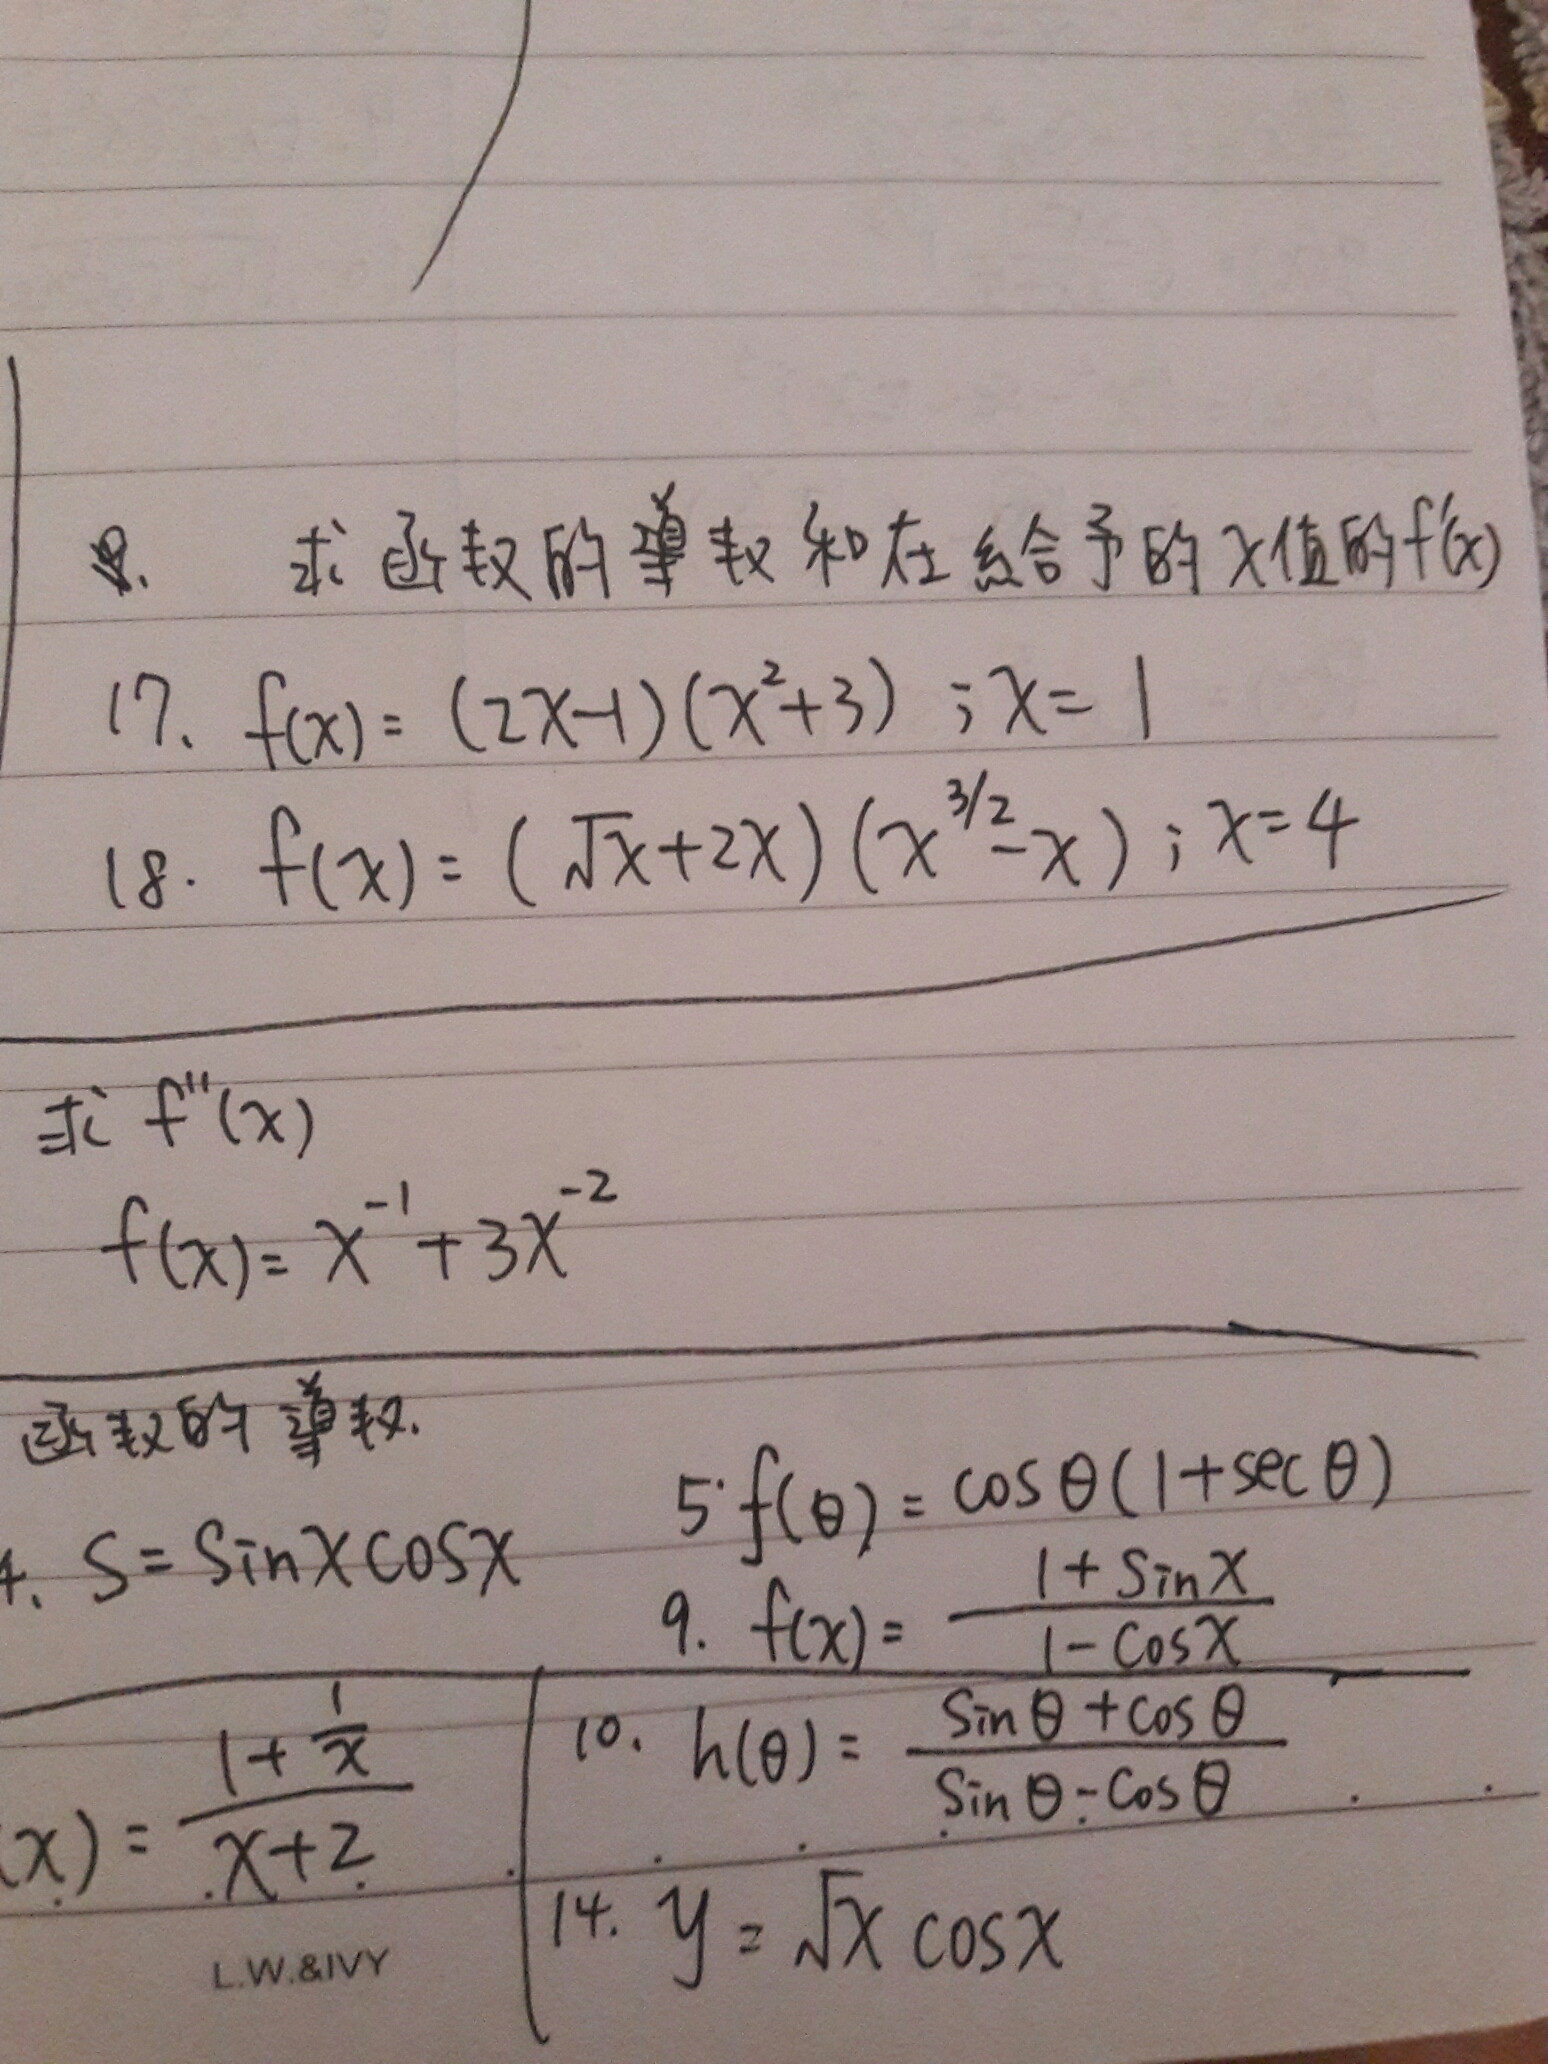 求函数的導数和在給予的x值的f'(x)
17. f(x) = (2x-1)(x²+3) ; x = 1
18. f(x) = (√x+2x)(x^3/2-x) ; x=4
求 f''(x)
f(x) = x⁻¹+3x⁻²
函数的導数.
4. S = Sinx cosx
5. f(θ) = cosθ(1+secθ)
9. f(x) = (1+Sinx)/(1-Cosx)
(x) = (1+1/x)/(x+2)
10. h(θ) = (Sinθ+cosθ)/(Sinθ-Cosθ)
14. y = √x cosx
L.W.&IVY